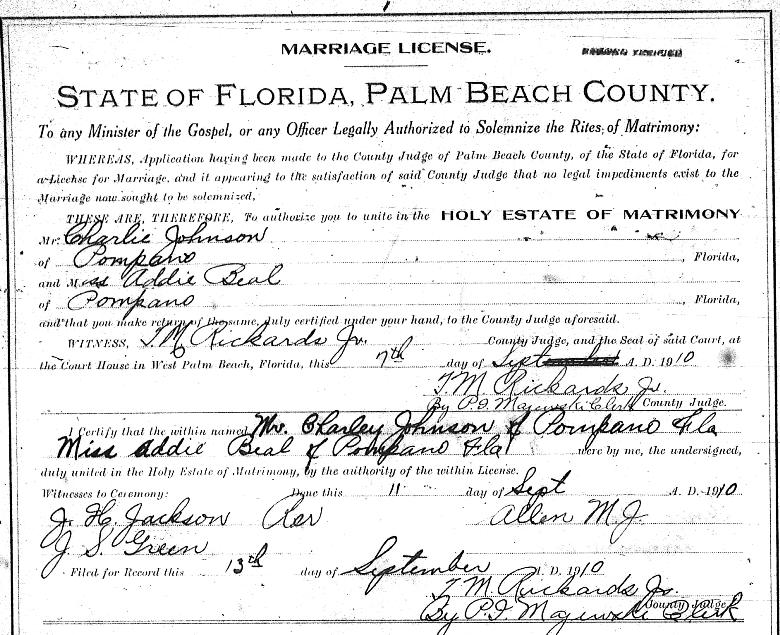 MARRIAGE LICENSE.
STATE OF FLORIDA, PALM BEACH COUNTY.
To any Minister of the Gospel, or any Officer Legally Authorized to Solemnize the Rites of Matrimony:
WHEREAS, Application having been made to the County Judge of Palm Beach County, of the State of Florida, for
a License for Marriage, and it appearing to the satisfaction of said County Judge that no legal impediments exist to the
Marriage now sought to be solemnized,
THESE ARE, THEREFORE, To authorize you to unite in the HOLY ESTATE OF MATRIMONY
Mr. Charlie Johnson
of Pompano, Florida,
and Miss Addie Beal
of Pompano, Florida,
and that you make return of the same, duly certified under your hand, to the County Judge aforesaid.
WITNESS, T M Rickards Jr. County Judge, and the Seal of said Court, at
the Court House in West Palm Beach, Florida, this 7th day of Sept A. D. 1910
T. M Rickards Jr.
By P. I. Majewski Clerk County Judge.
I Certify that the within named Mr. Charley Johnson of Pompano Fla
Miss Addie Beal of Pompano Fla were by me, the undersigned,
duly united in the Holy Estate of Matrimony, by the authority of the within License.
Witnesses to Ceremony: Done this 11 day of Sept A. D. 1910
J. H. Jackson Rev Allen M. J.
J. S. Green
Filed for Record this 13th day of September A. D. 1910
T. M Rickards Jr.
County Judge
By P. I. Majewski Clerk